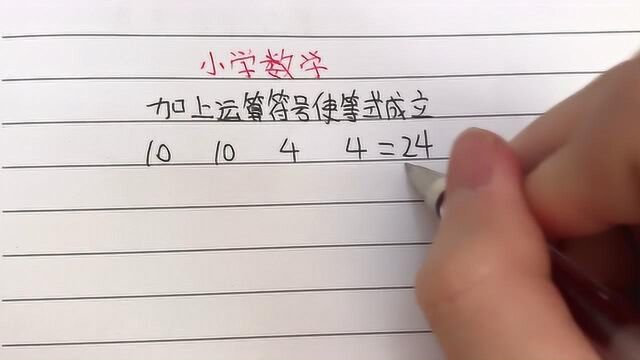 小学数学
加上运算符号使等式成立
10 10 4 4=24